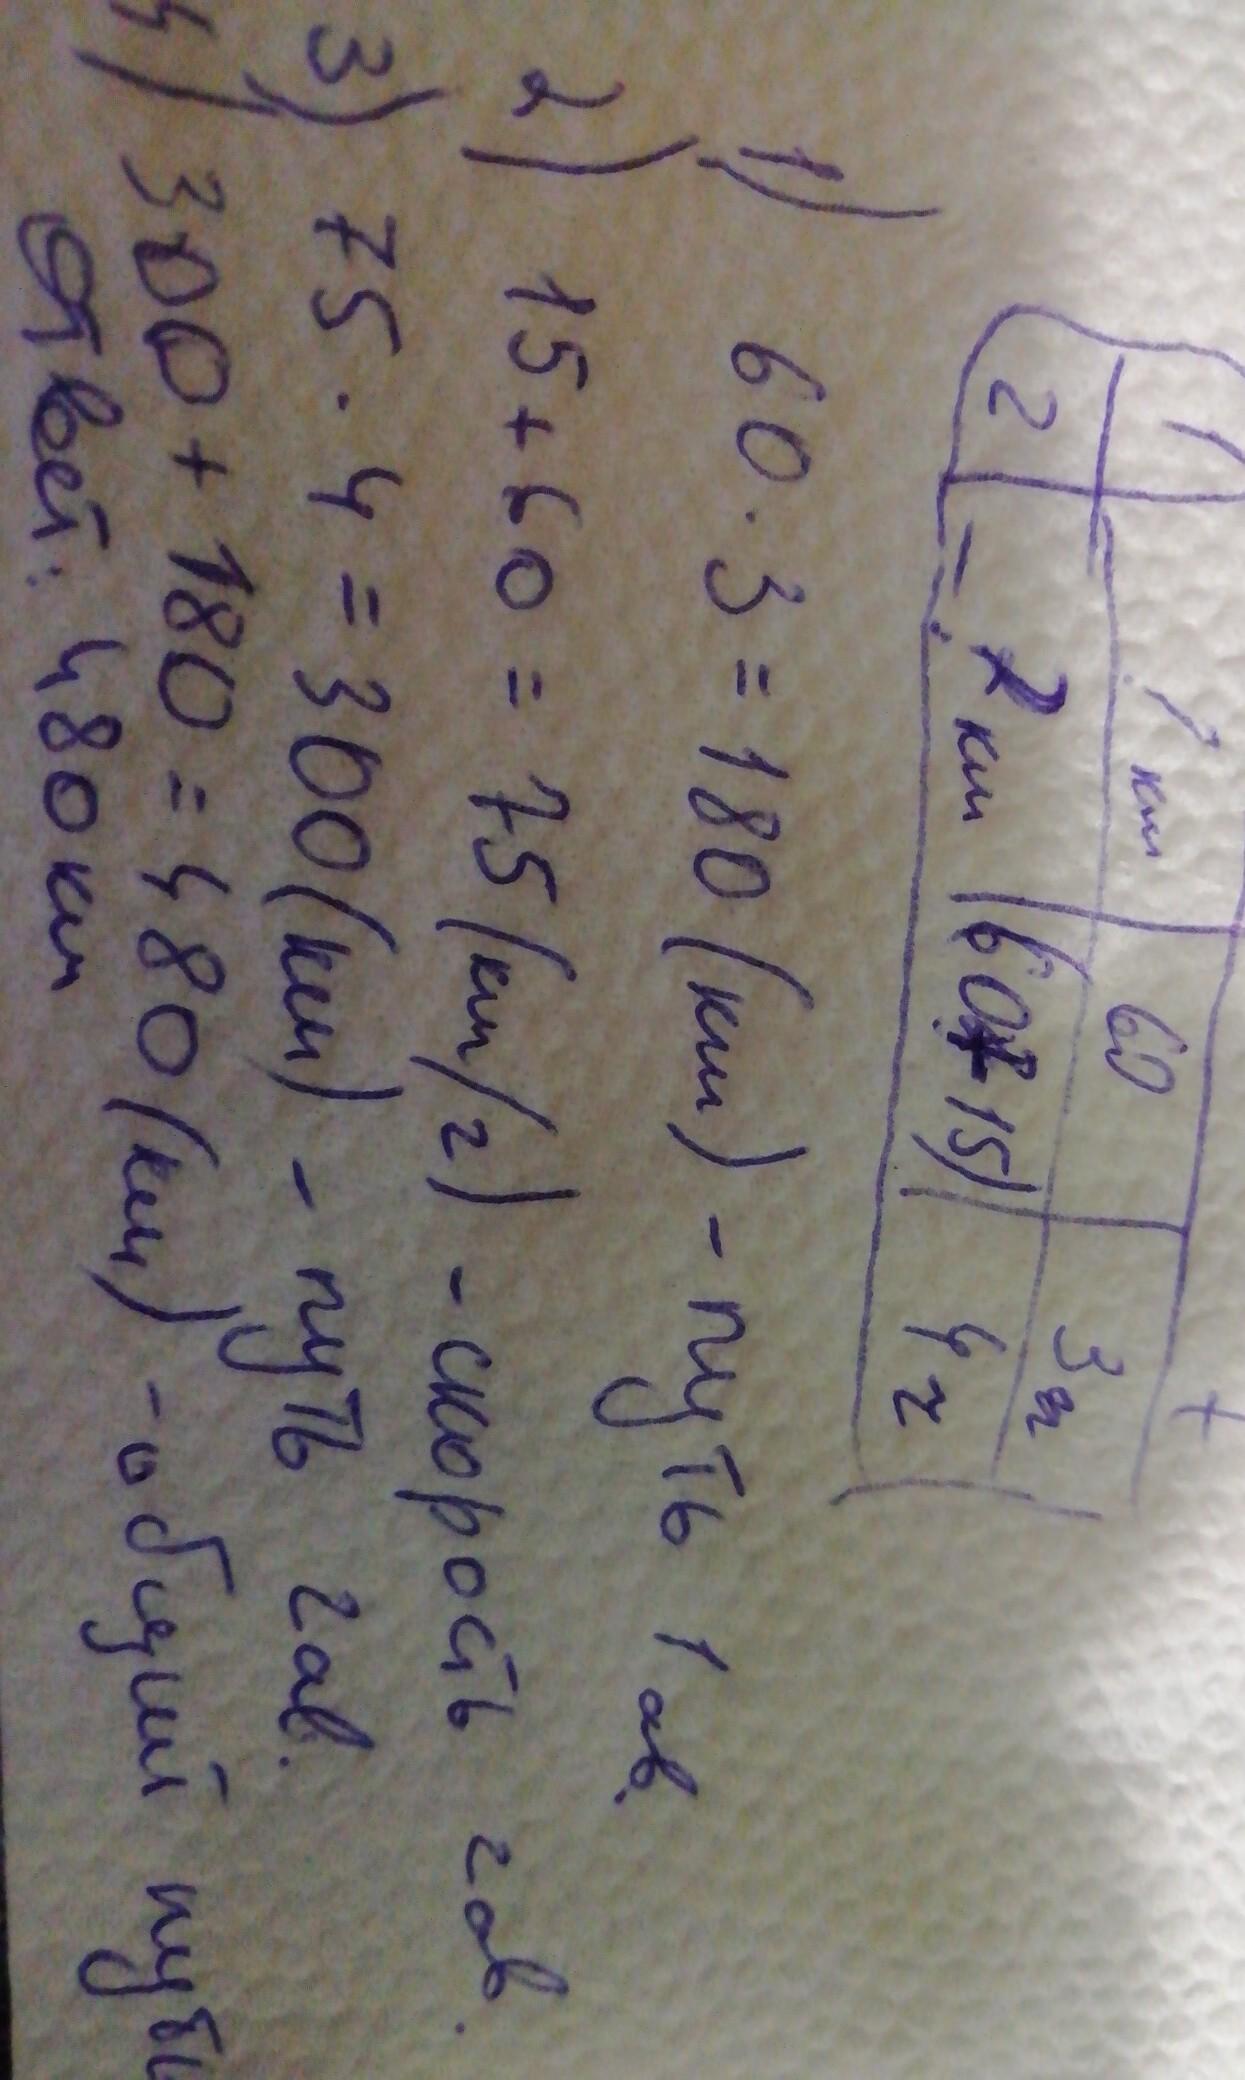 t
1 ? км 60 3 ч
2 - ? км (60+15) 4 ч
1) 60 · 3 = 180 (км) - путь 1 ав.
2) 15 + 60 = 75 (км/ч) - скорость 2ав.
3) 75 · 4 = 300 (км) - путь 2ав.
4) 300 + 180 = 480 (км) - общий путь
Ответ: 480 км